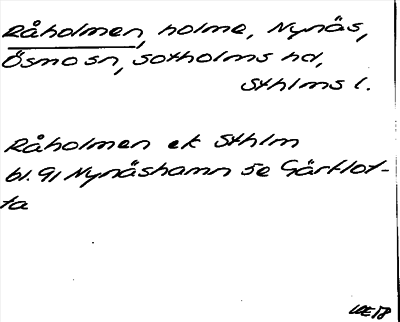 Råholmen, holme, Nynäs,
Ösmo sn, Sotholms hd,
Sthlms l.
Råholmen ek Sthlm
bl. 91 Nynäshamn 5e Gärflot-
ta